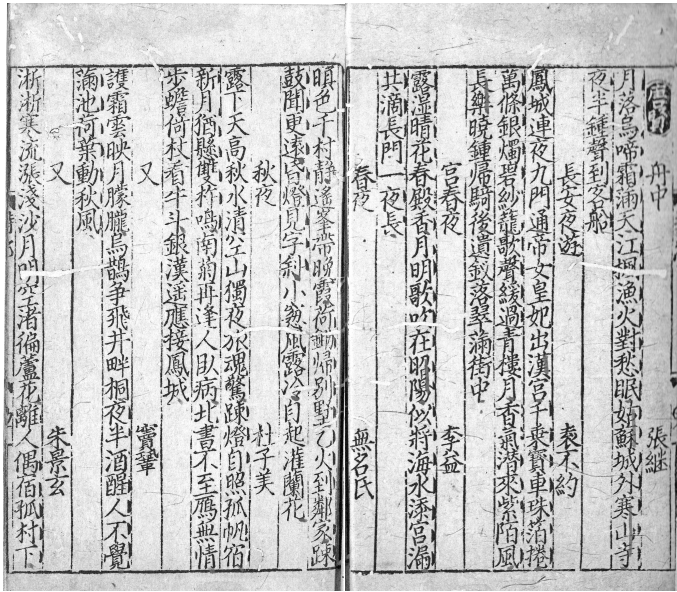 舟中 張継
月落烏啼霜滿天江楓漁火對愁眠姑蘇城外寒山寺
夜半鍾聲到客船
長安夜遊 袁不約
鳳城連夜九門通帝女皇妃出漢宮千乗寶車珠箔捲
萬條銀燭碧紗籠歌聲緩過青樓月香氣潜來紫陌風
長樂曉鍾帰騎後遺釵落翠滿街中
宮春夜 李益
露湿晴花春殿香月明歌吹在昭陽似將海水添宮漏
共滴長門一夜長
春夜 無名氏
暝色千村靜遥峯帶晚霞荷鋤帰別墅乞火到鄰家踈
鼓聞更遠燈見字小窓風露冷自起灌蘭花
秋夜 杜子美
露下天高秋水清空山獨夜旅魂驚踈燈自照孤帆宿
新月猶懸杵鳴南菊再逢人臥病北書不至鴈無情
步蟾倚杖看牛斗銀漢遥應接鳳城
又 竇鞏
護霜雲映月朦朧烏鵲爭飛井畔桐夜半酒醒人不覺
滿池荷葉動秋風
又 朱景玄
淅淅寒流漲淺沙月明空渚徧蘆花離人偶宿孤村下